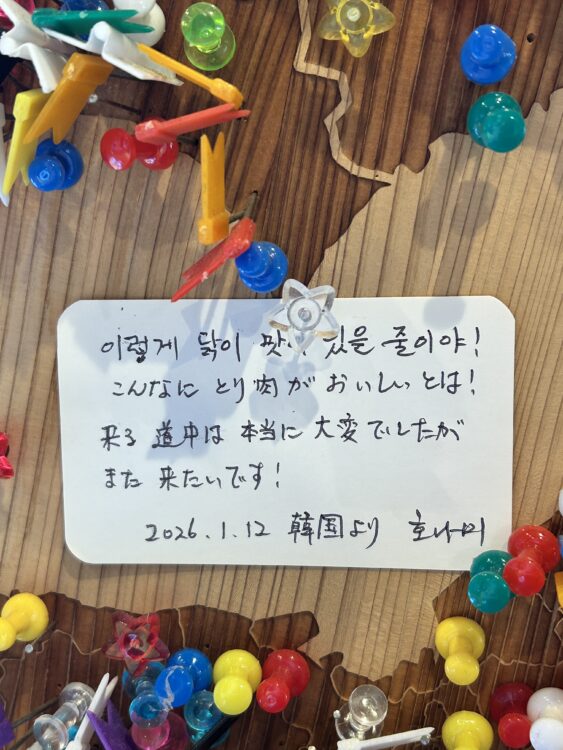 이렇게 닭이 맛 있을 줄이야!
こんなに とり肉が おいしいとは!
来る 道中は 本当に 大変でしたが
また 来たいです!
2026.1.12 韓国より 호나미